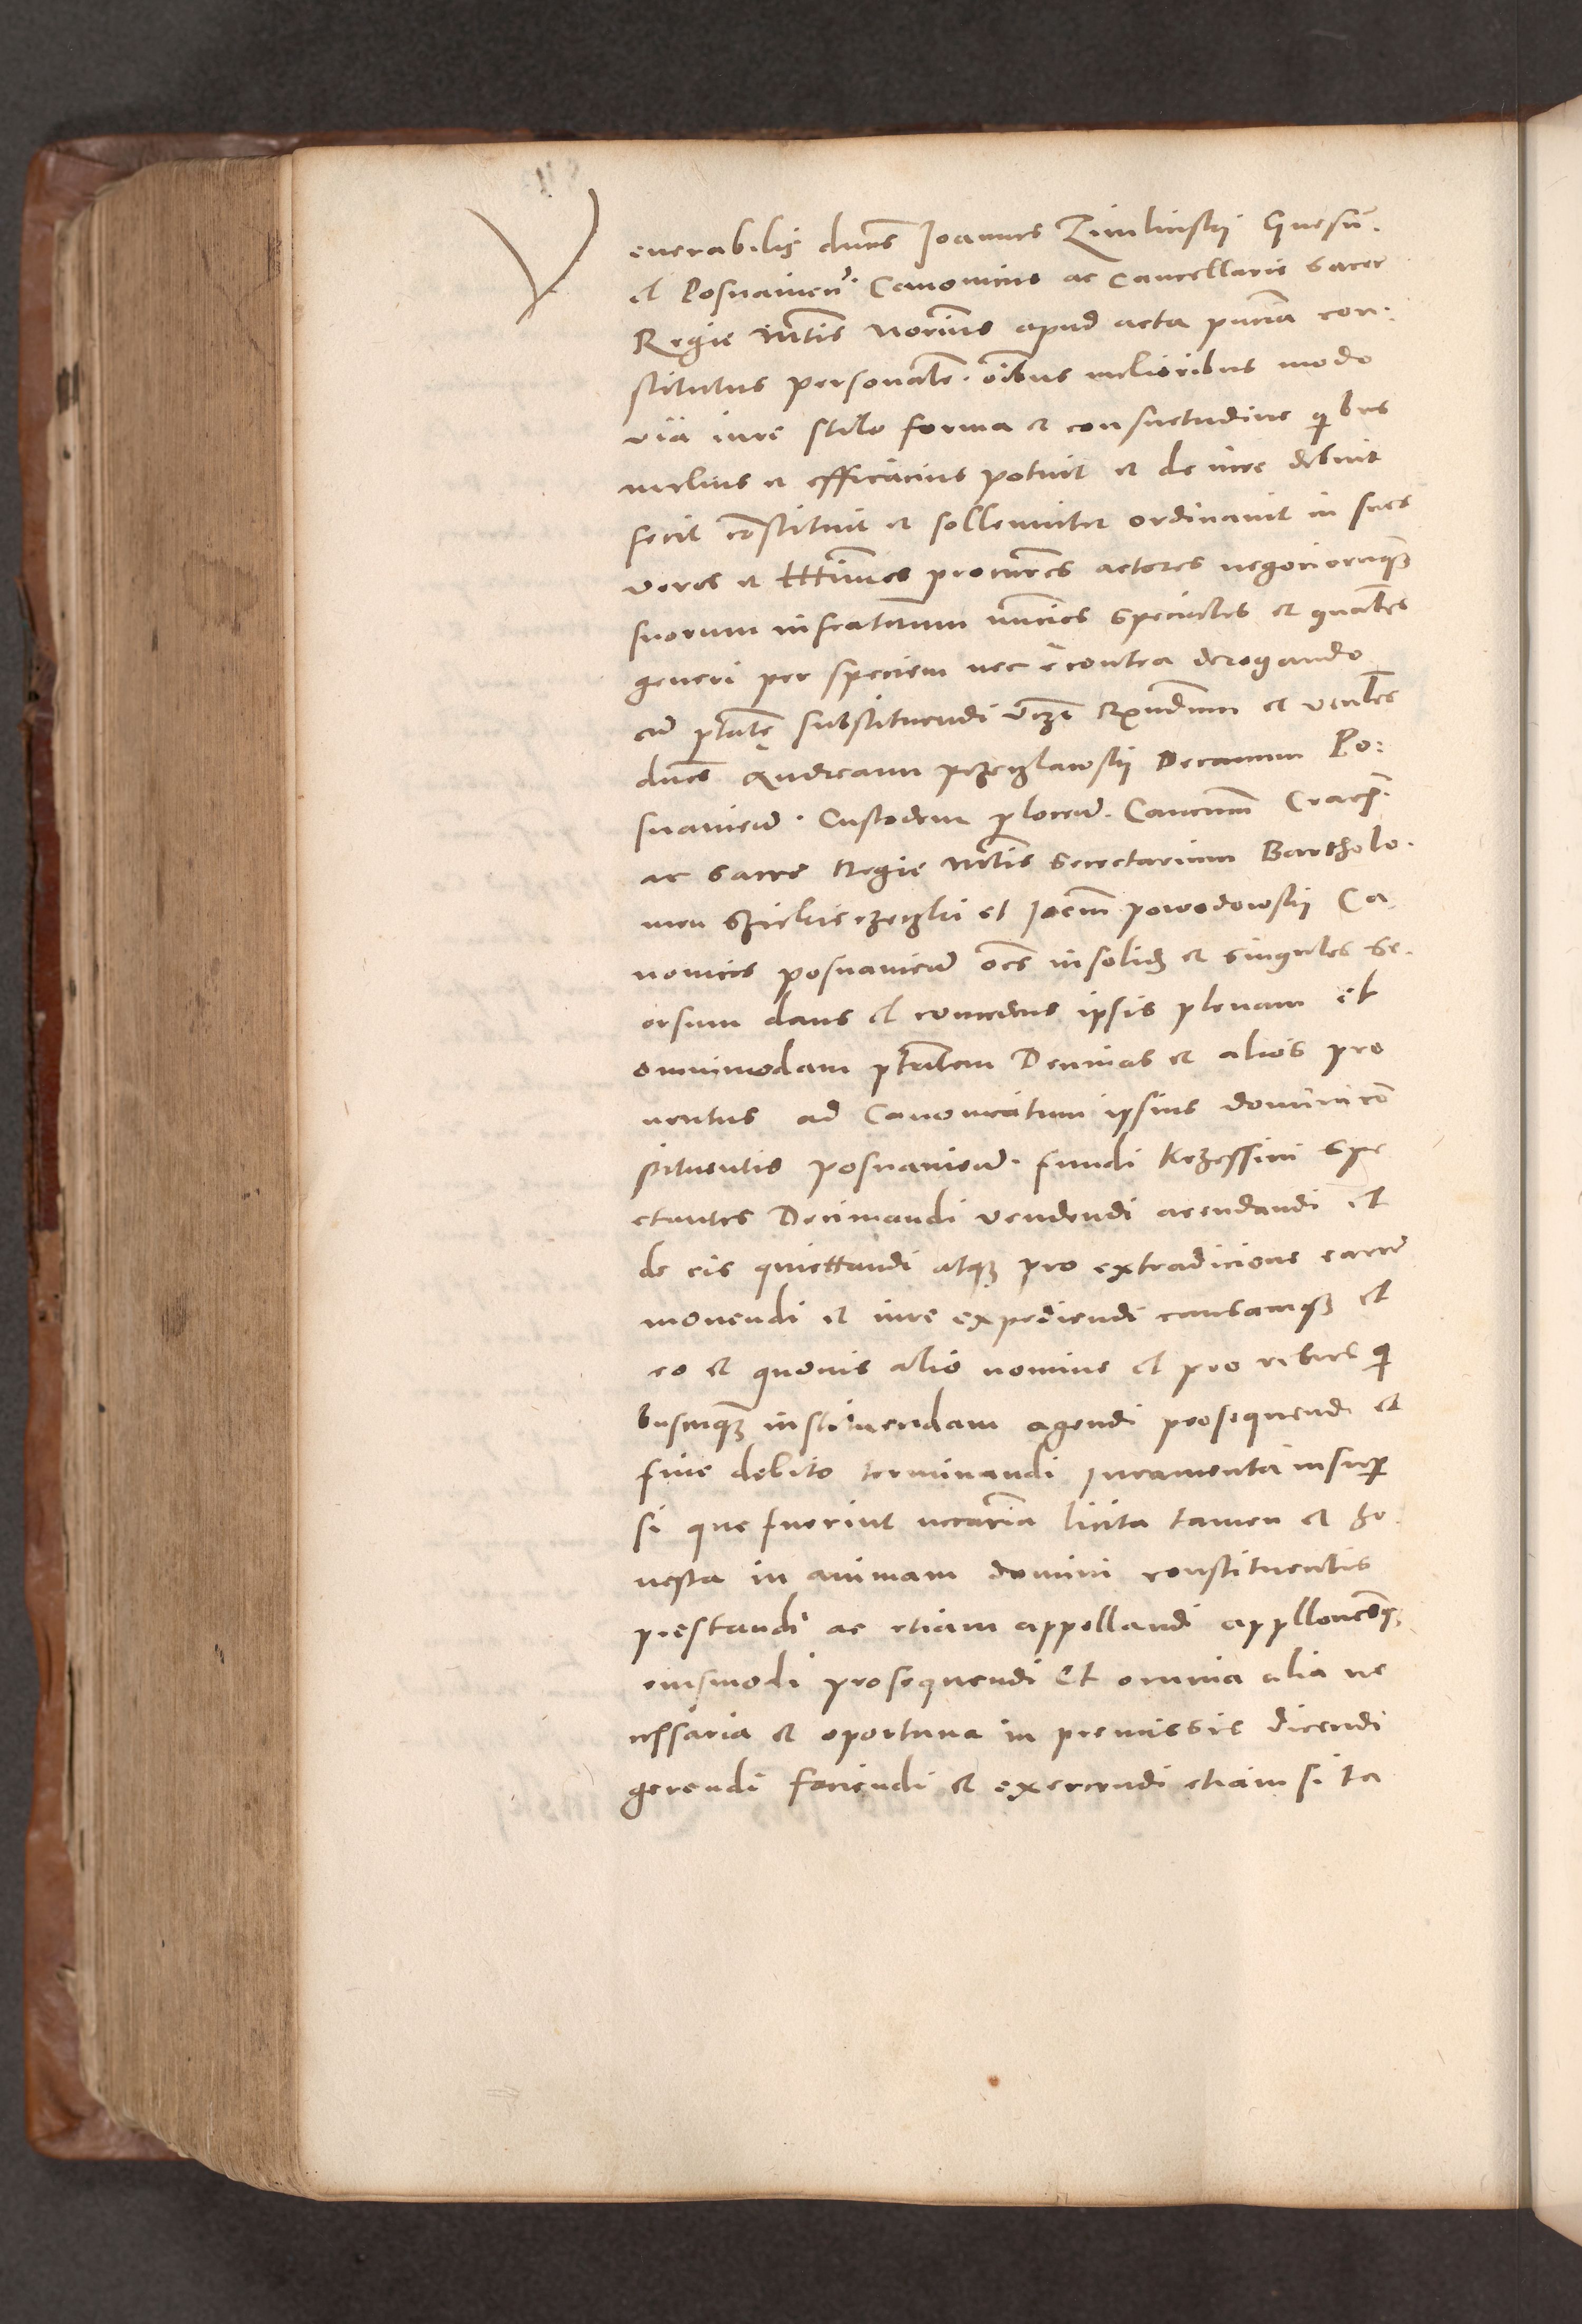 Venerabilis dns Joannes Zimlinskij Gnesn.
et Posnanien. Canonicus ac Cancellarie Sacre
Regie Mtis Notrius apud acta pntia con:
stitutus personalr. oibus melioribus modo
via iure stilo forma et consuetudine quibus
melius et efficacius potuit et de iure debuit
fecit constituit et sollemniter ordinavit in suos
veros et ltimos procures actores negociorumque
suorum infrascriptorum nuncios speciales et gnales
generi per speciem nec econtra derogando
cum ptate substituendi vizt Rndum et vnbles
dnos Andream przeczlawskij Decanum Po:
snanien. Custodem plocen. Canonicum Cracn.
ac Sacre Regie Mtis Secretarium Bartholo.
meu et Joem powodowskij Ca
nonicos posnanien oes insolidum et singulos se.
orsum dans et concedens ipsis plenam et
omnimodam ptatem Decimas et alios pro
ventus ad Canonicatum ipsius domini con
stituentis posnanien. fundi krzessini spe
ctantes Decimandi vendendi arendandi et
de eis quiettandi atque pro extradicione earum
monendi et iure expediendi causamque et
eo et quovis alio nomine et pro rebus qui
buscunque instituendam agendi prosequendi et
fine debito terminandi Juramenta insuper
si que fuerint necraria licita tamen et ho.
nesta in animam domini constituentis
prestandi ac etiam appellandi appllonesque
eiusmodi prosequendi Et omnia alia ne
cessaria et oportuna in premissis dicendi
gerendi faciendi et exercendi etiam si ta